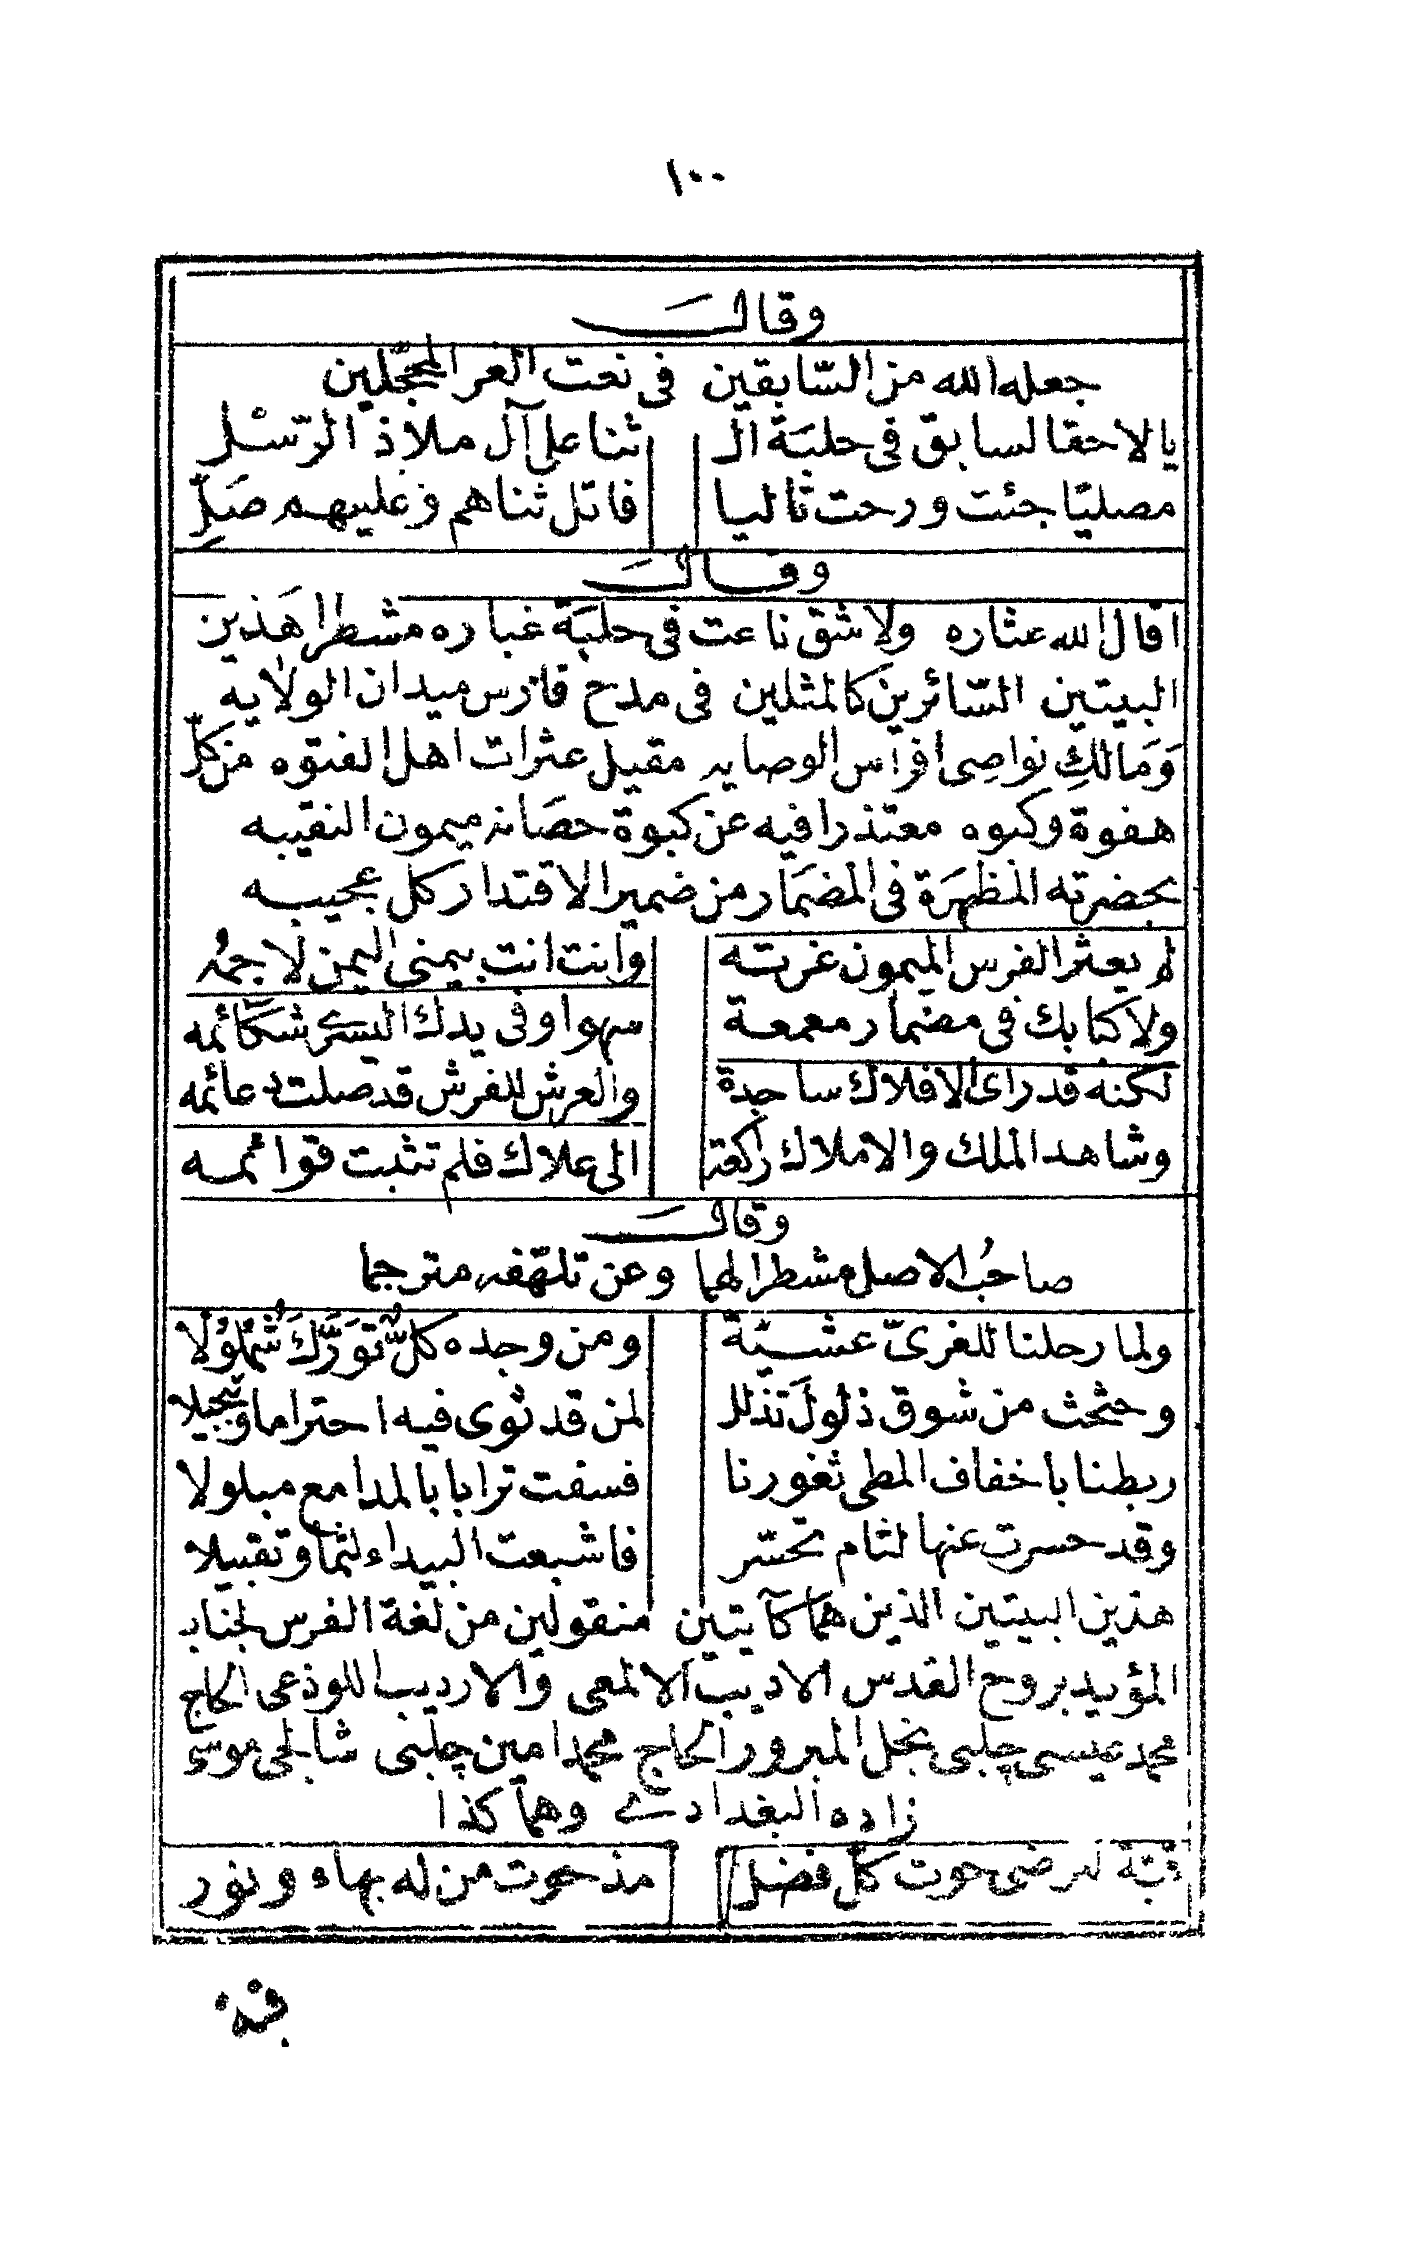 ١٠٠
وقال
جعله الله من السّابقين في نعت الغر المحجّلين
يا لاحقا لسابق في حلبة الـ ثنا على آل ملاذ الرّسل
مصليّا جئت ورحت تاليا فاتل ثناهم وعليهم صَلِّ
وقال
اقال الله عثاره ولا شق ناعت في حلبة غباره مشطرا هذين
البيتين السّائرين كالمثلين في مدح فارس ميدان الولايه
وَمَالكِ نواصِى افراس الوصايه مقيل عثرات اهل الفتوه من كلّ
هفوة وكبوه معتذرا فيه عن كبوة حصَانه ميمون النقيبه
بحضرته المظهرَة في المضمَار من ضمير الاقتدار كل عجيبه
لم يعثر الفرس الميمون غرته وانت انت بيمنى اليمن لاجمُه
ولا كبا بك في مضمار معمعة سهوا وفى يدك اليسرى شكائمه
لكنه قد راى الافلاك ساجدة والعرش للفرش قد صلت دعائمه
وشاهد الملك والاملاك راكعة الى علاك فلم تثبت قوائمه
وقال
صاحُب الاصل مشطرا لهما وعن تلهّفه مترجما
ولما رحلنا للغرىّ عشيّة ومن وجده كلٌّ تَوَرَّكَ شُمْلُولَا
وحثحث من شوق ذلول تذلل لمن قد ثوى فيه احتراما وتبجيلا
ربطنا باخفاف المطى ثغورنا فسفت ترابا بالمدامع مبلولا
وقد حسرت عنها لثام تحسّر فاشبعت البيداء لثما وتقبيلا
هذين البيتين الذين هما كآيتين منقولين من لغة الفرس لجناب
المؤيد بروح القدس الاديب الالمعى والارديب اللوذعى الحاج
محمد عيسى چلبى نجل المبرور الحاج محمد امين چلبى شابلجى موسى
زاده البغدادى وهما كذا
قبّة لمرضى حوت كلّ فضل مذ حوت من له بهاء ونور